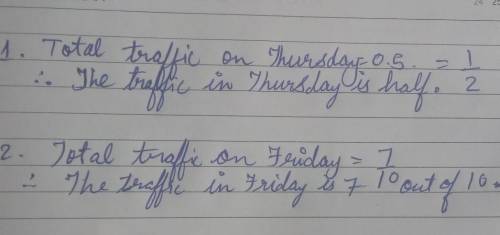 1. Total traffic on Thursday = 0.5. = 1/2
∴ The traffic in Thursday is half.
2. Total traffic on Friday = 7/10
∴ The traffic in Friday is 7 out of 10.